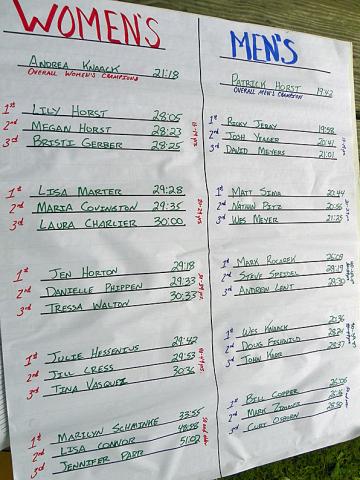 WOMEN'S
ANDREA KNAACK 21:18
OVERALL WOMEN'S CHAMPION
1st LILY HORST 28:05
2nd MEGAN HORST 28:23
3rd BRISTI GERBER 28:25
1st LISA MARTER 29:28
2nd MARIA COVINGTON 29:35
3rd LAURA CHARLIER 30:00
1st JEN HORTON 29:18
2nd DANIELLE PHIPPEN 29:33
3rd TRESSA WALTON 30:33
1st JULIE HESSENIUS 29:42
2nd JILL CRESS 29:53
3rd TINA VASQUEZ 30:36
1st MARILYN SCHMINKE 33:55
2nd LISA CONNOR 48:58
3rd JENNIFER PARR 51:02
MEN'S
PATRICK HORST 19:42
OVERALL MEN'S CHAMPION
1st RICKY JERAY 19:58
2nd JOSH YEAGER 20:41
3rd DAVID MEYERS 21:01
1st MATT SIMS 20:44
2nd NATHAN PITZ 20:56
3rd WES MEYER 21:25
1st MARK 26:09
2nd STEVE SPEIDEL 29:19
3rd ANDREW LENT 29:30
1st WES KNAACK
2nd DOUG
3rd JOHN KARR
1st BILL COOPER
2nd MARK ZIMMER
3rd CURT OSBORN